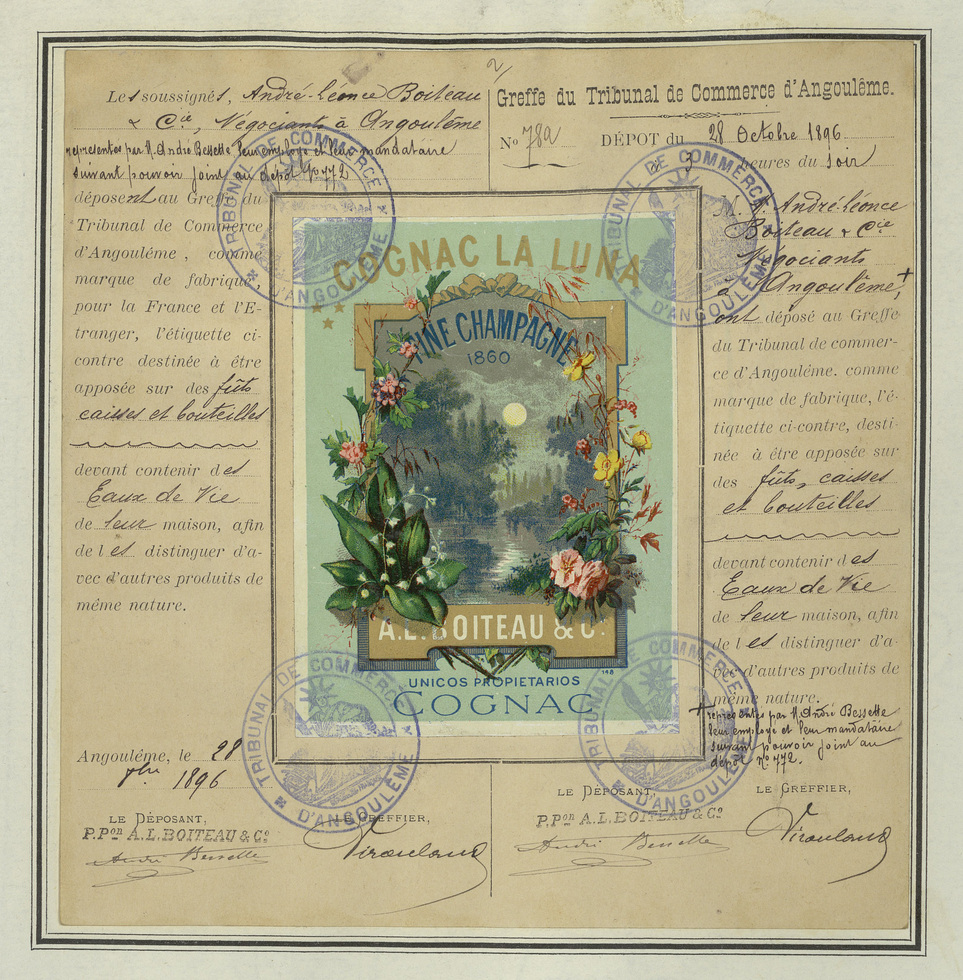 Les soussignés, André-Léonce Boiteau
& Cie, Négociants à Angoulême
représentés par M. André Bessette leur employé et leur mandataire
suivant pouvoir joint au dépôt No 772
déposent au Greffe du
Tribunal de Commerce
d'Angoulême, comme
marque de fabrique,
pour la France et l'E-
tranger, l'étiquette ci-
contre destinée à être
apposée sur des fûts
caisses et bouteilles
devant contenir des
Eaux de Vie
de leur maison, afin
de les distinguer d'a-
vec d'autres produits de
même nature.
Angoulême, le 28
8bre 1896
LE DÉPOSANT,
P.Pon A.L. BOITEAU & Co
André Bessette
LE GREFFIER,
COGNAC LA LUNA
FINE CHAMPAGNE
1860
A.L. BOITEAU & Co
148
UNICOS PROPIETARIOS
COGNAC
2/
Greffe du Tribunal de Commerce d'Angoulême.
No 782
DÉPOT du 28 Octobre 1896
à 3 heures du soir
M. M. André-Léonce
Boiteau & Cie
Négociants
à Angoulême +,
ont déposé au Greffe
du Tribunal de commer-
ce d'Angoulême. comme
marque de fabrique, l'é-
tiquette ci-contre, desti-
née à être apposée sur
des fûts, caisses
et bouteilles
devant contenir des
Eaux de Vie
de leur maison, afin
de les distinguer d'a-
vec d'autres produits de
même nature.
+ représentés par M. André Bessette
leur employé et leur mandataire
suivant pouvoir joint au
dépôt No 772.
LE DÉPOSANT,
P.Pon A.L. BOITEAU & Co
André Bessette
LE GREFFIER,
TRIBUNAL DE COMMERCE
D'ANGOULÊME
TRIBUNAL DE COMMERCE
D'ANGOULÊME
TRIBUNAL DE COMMERCE
D'ANGOULÊME
TRIBUNAL DE COMMERCE
D'ANGOULÊME